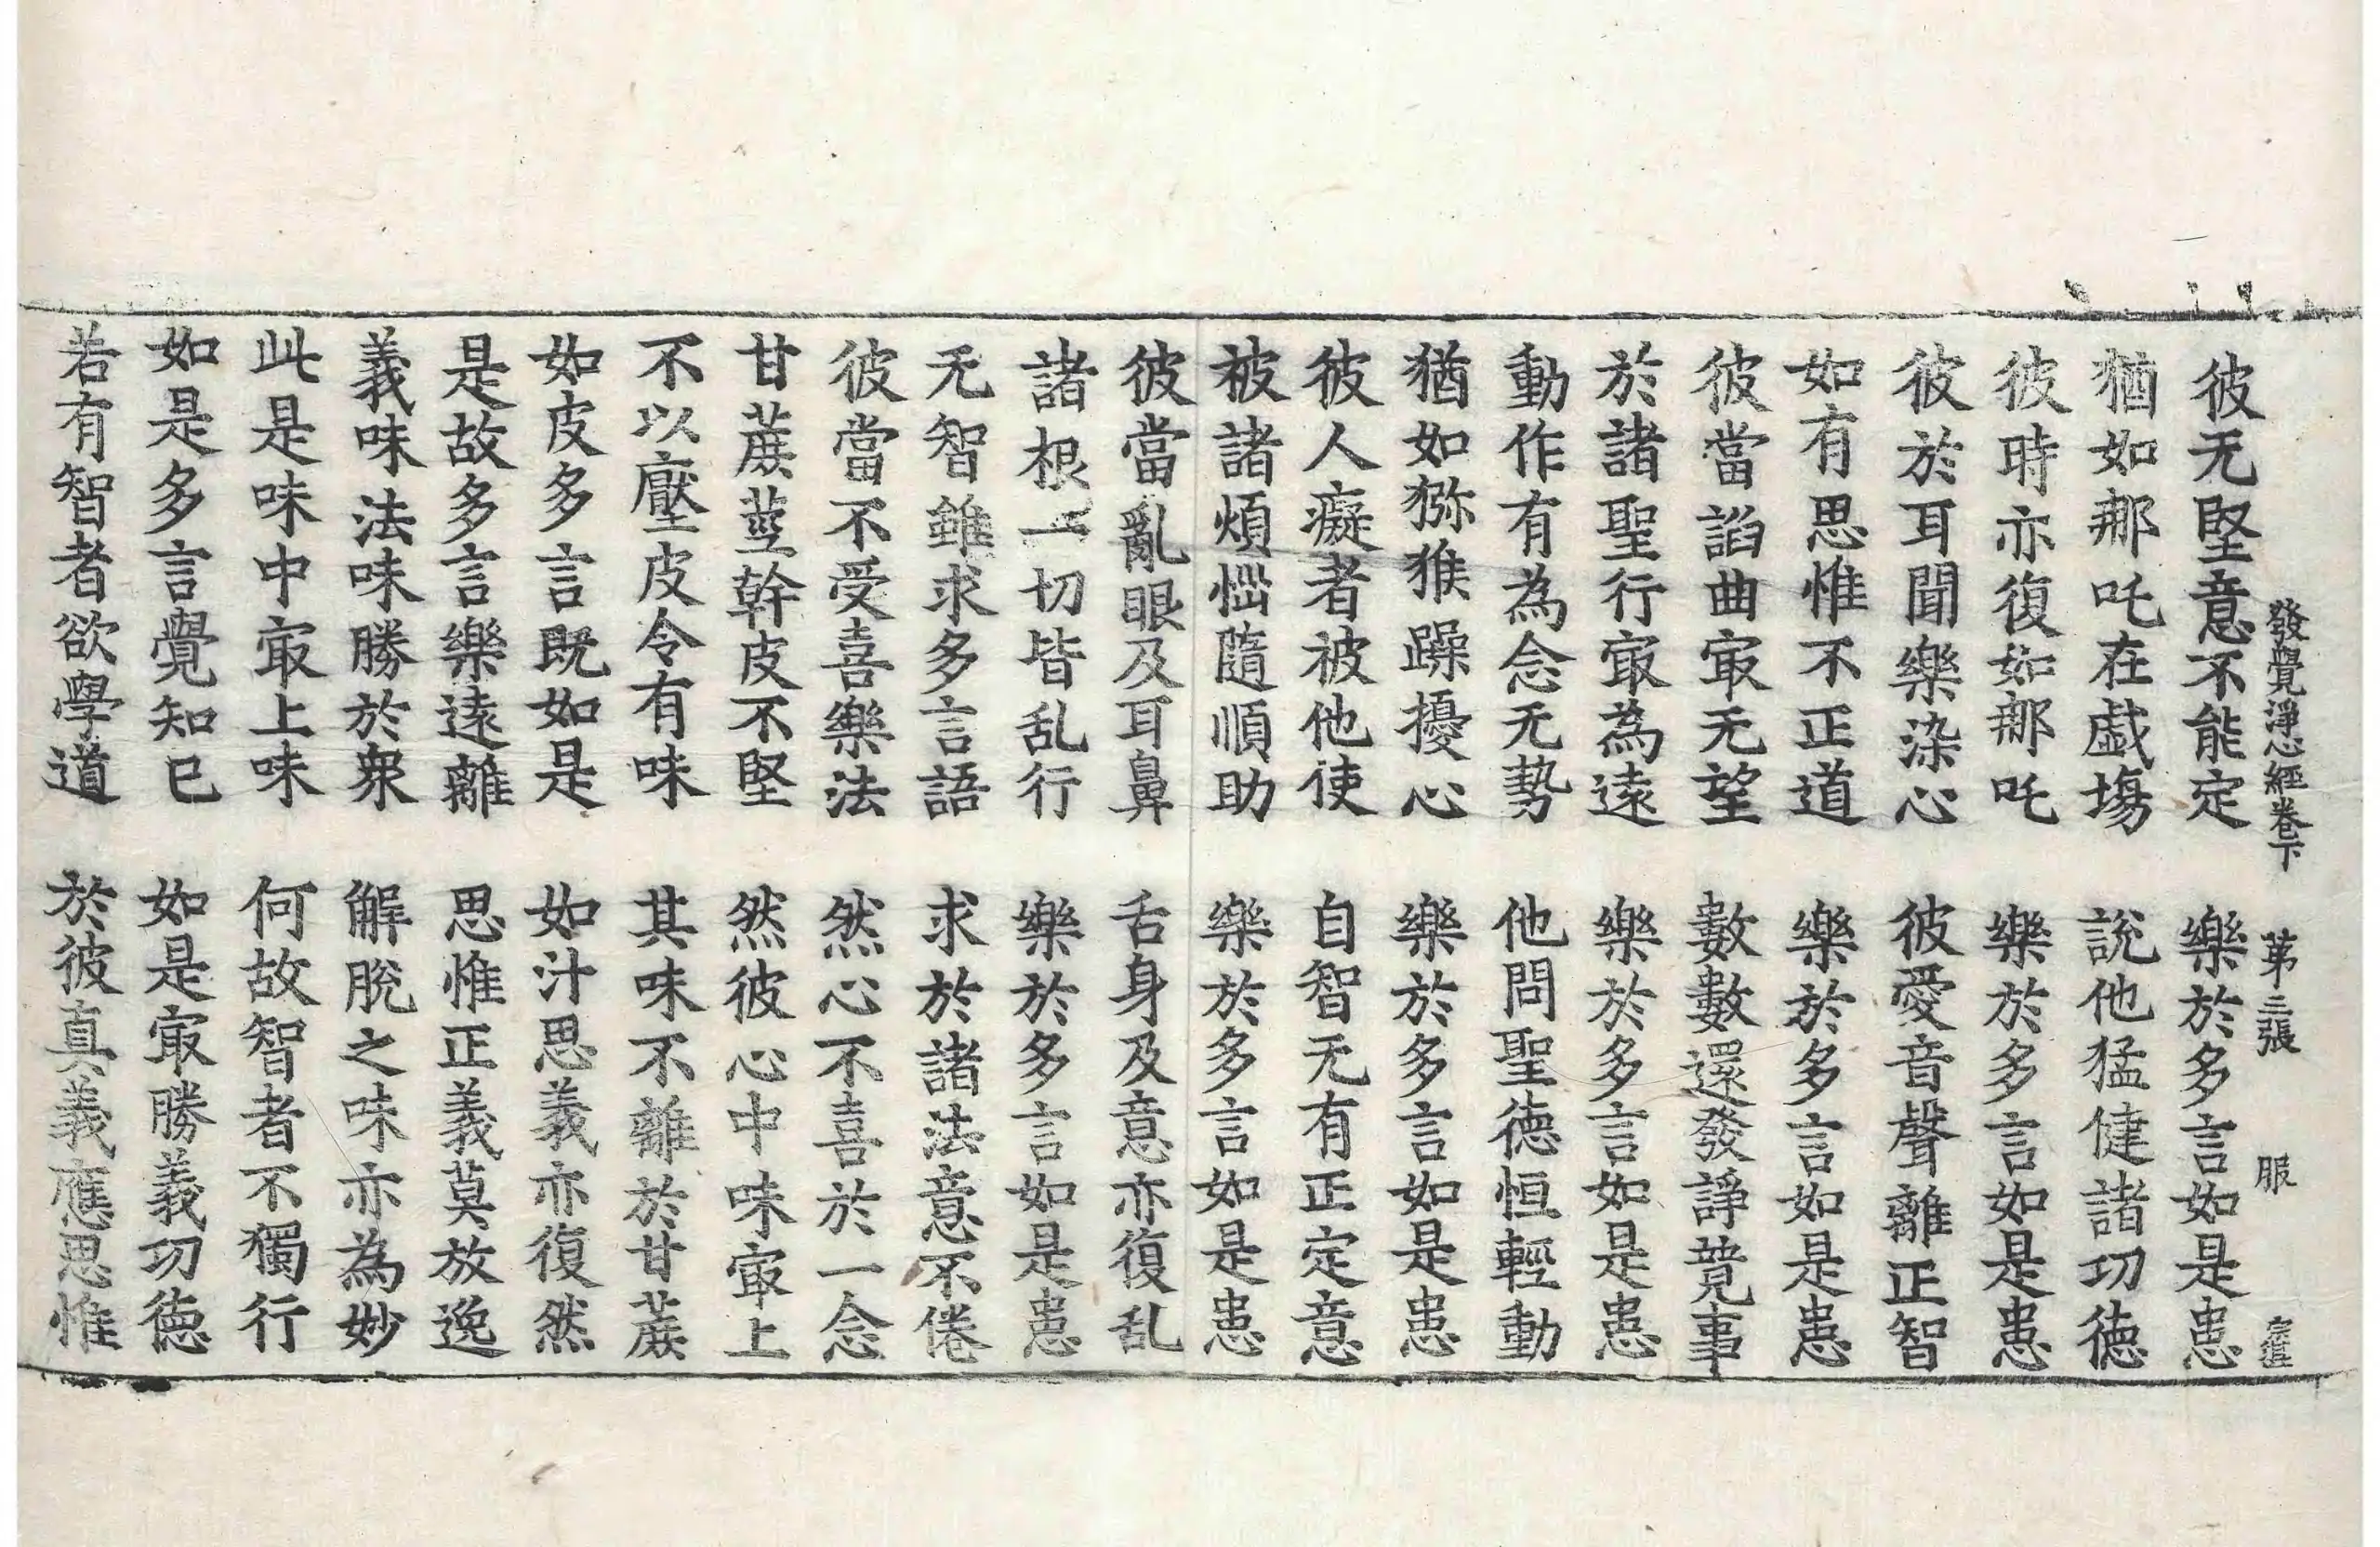 發覺淨心經卷下 第三張 服
彼无堅意不能定 樂於多言如是患
猶如那吒在戲場 說他猛健諸功德
彼時亦復如那吒 樂於多言如是患
彼於耳聞樂染心 彼愛音聲離正智
如有思惟不正道 樂於多言如是患
彼當諂曲㝡无望 數數還發諍競事
於諸聖行㝡為遠 樂於多言如是患
動作有為念无勢 他問聖德恒輕動
猶如猕猴躁擾心 樂於多言如是患
彼人癡者被他使 自智无有正定意
被諸煩惱隨順助 樂於多言如是患
彼當亂眼及耳鼻 舌身及意亦復乱
諸根一切皆乱行 樂於多言如是患
无智雖求多言語 求於諸法意不倦
彼當不受喜樂法 然心不喜於一念
甘蔗莖幹皮不堅 然彼心中味㝡上
不以壓皮令有味 其味不離於甘蔗
如皮多言既如是 如汁思義亦復然
是故多言樂遠離 思惟正義莫放逸
義味法味勝於衆 解脫之味亦為妙
此是味中㝡上味 何故智者不獨行
如是多言覺知已 如是㝡勝義功德
若有智者欲學道 於彼真義應思惟